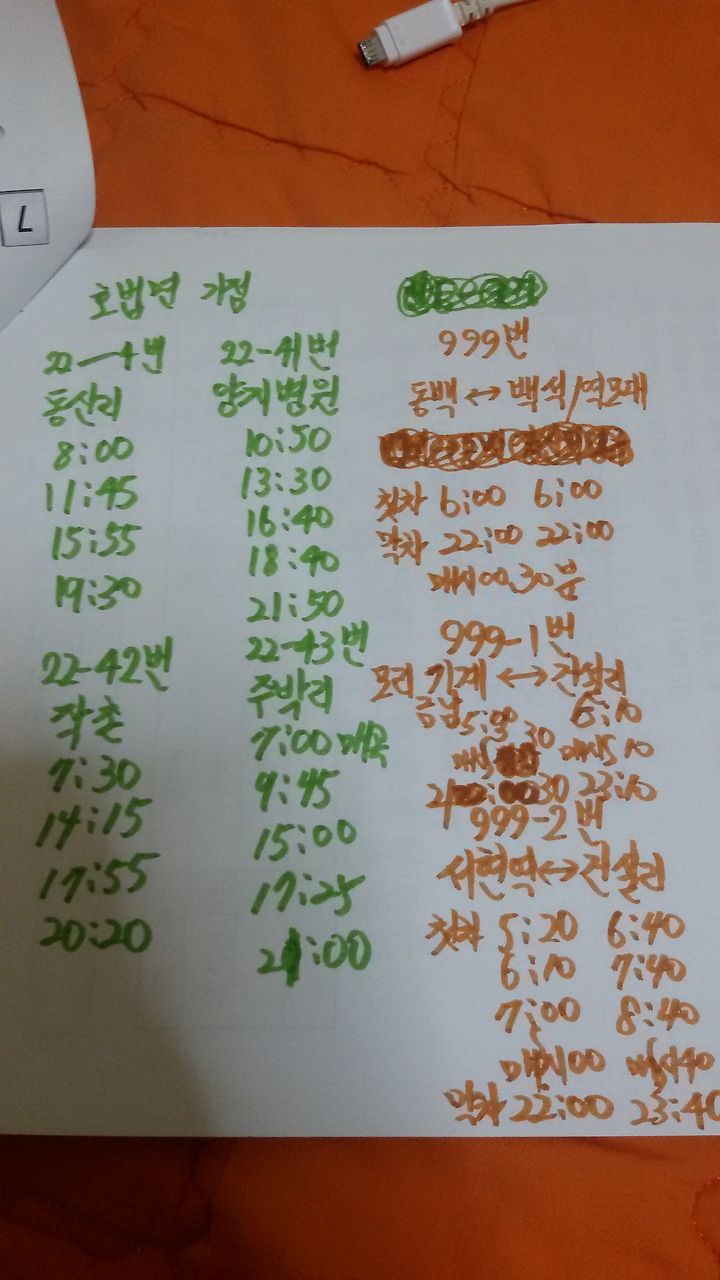 호법면 가점
22-4번
동산리
8:00
11:45
15:55
19:30
22-42번
작촌
7:30
14:15
17:55
20:20
22-41번
양지병원
10:50
13:30
16:40
18:40
21:50
22-43번
주박리
7:00
9:45
15:00
17:25
21:00
999번
동백↔백석/역모대
첫차 6:00 6:00
막차 22:00 22:00
매시00,30분
999-1번
모리기계↔건설리
6:10
매시10
23:10
999-2번
서현역↔건설리
첫차 5:20 6:40
6:10 7:40
7:00 8:40
매시00 매시40
막차 22:00 23:40